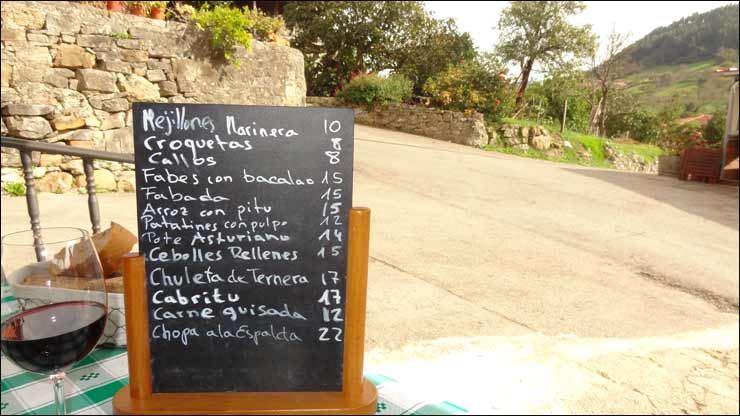 Mejillones Marinera 10
Croquetas 8
Callos 8
Fabes con bacalao 15
Fabada 15
Arroz con pitu 15
Patatines con pulpo 12
Pote Asturiano 14
Cebolles Rellenes 15
Chuleta de Ternera 17
Cabritu 17
Carne guisada 12
Chopa a la Espalda 22